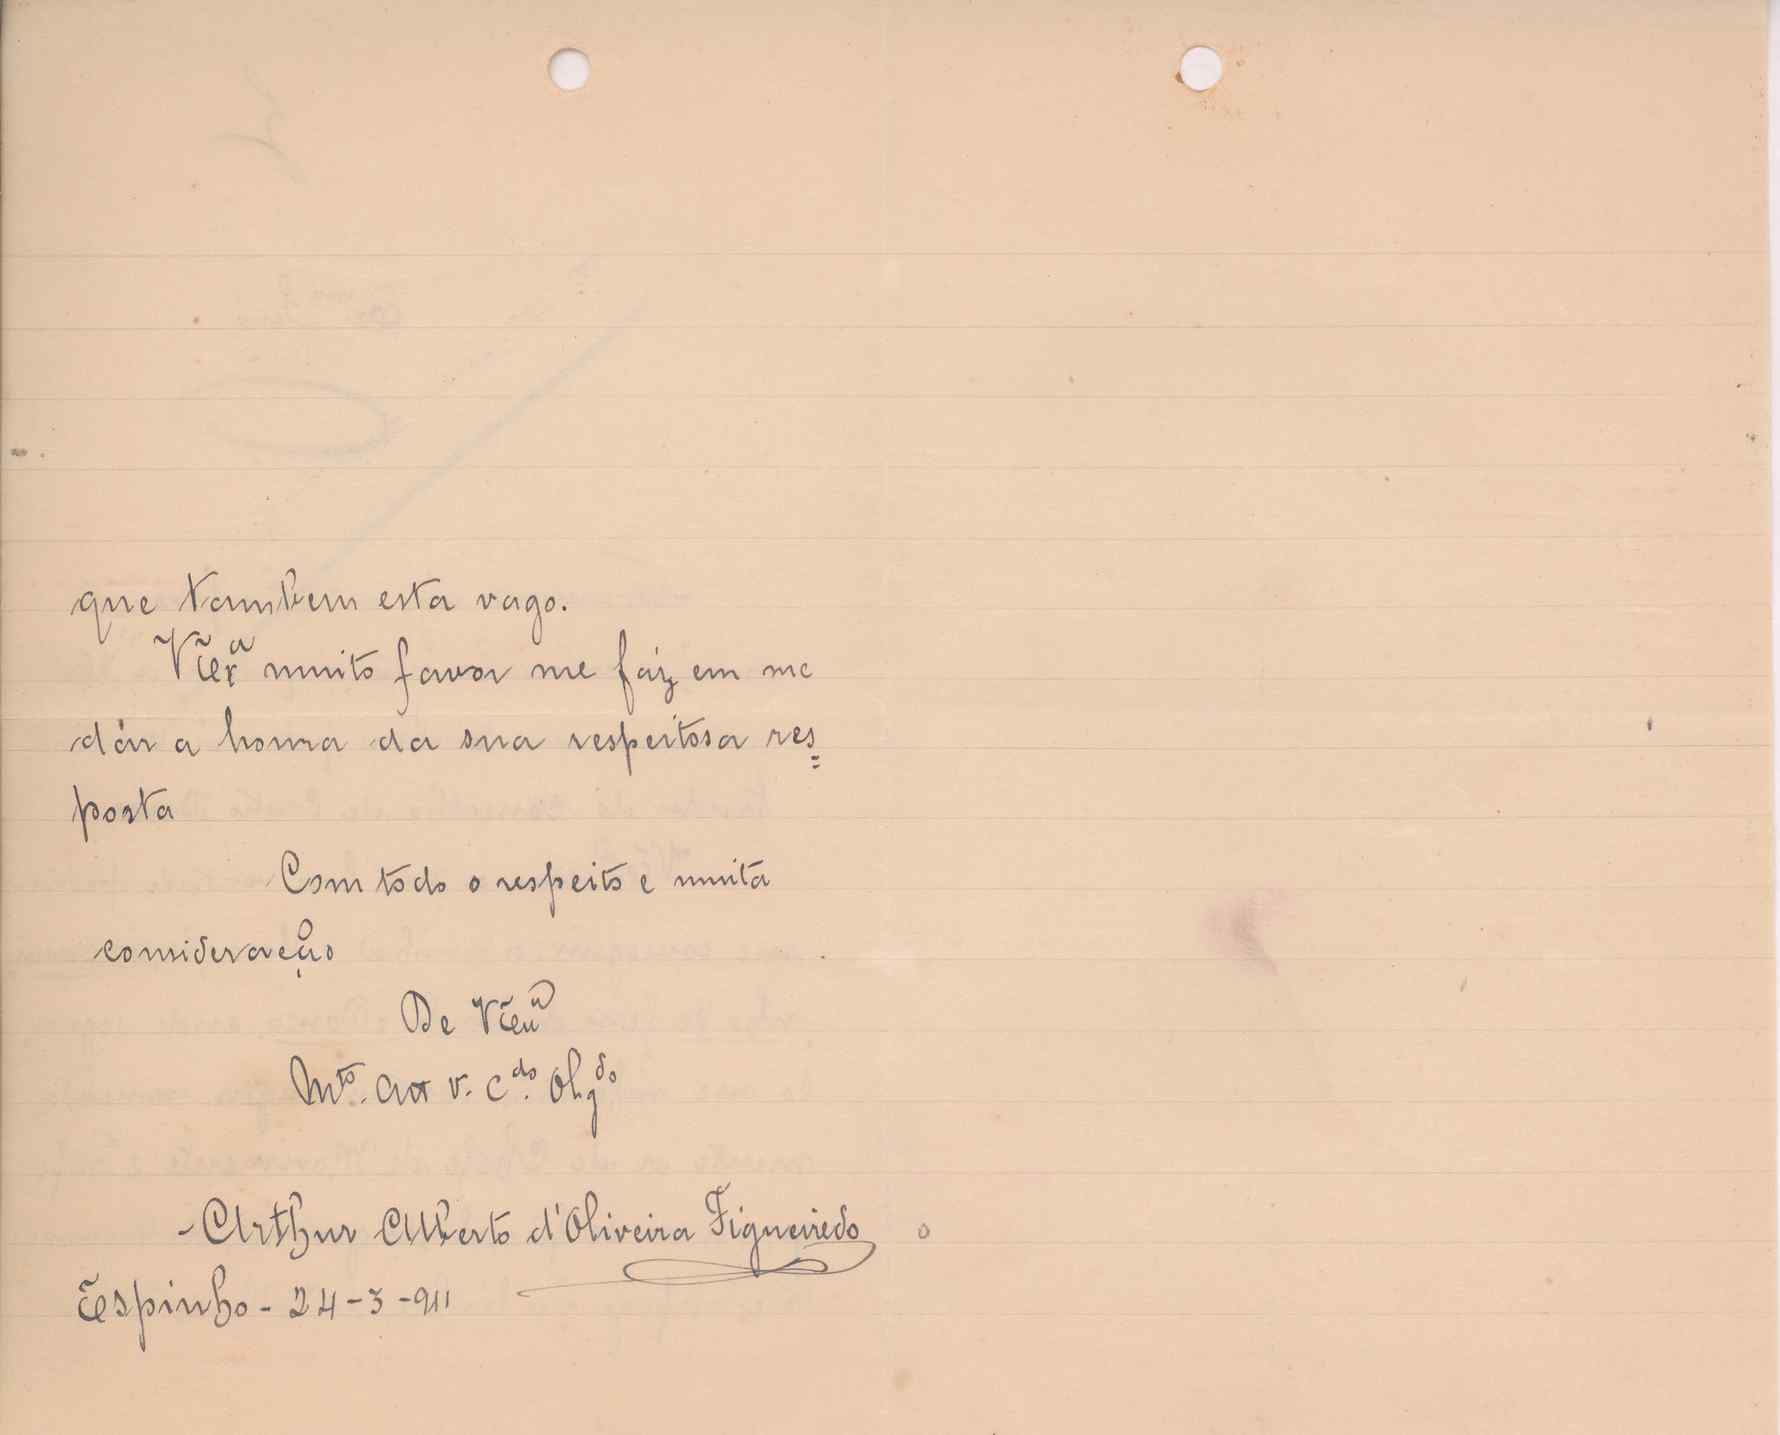 que tambem esta vago.
V Exª muito favor me fáz em me
dár a honra da sua respeitosa res=
posta
Com todo o respeito e muita
consideração
De V Exª
Mto. Att v. Cdo. Obgdo
- Arthur Alberto d'Oliveira Figueiredo
Espinho - 24-3-911